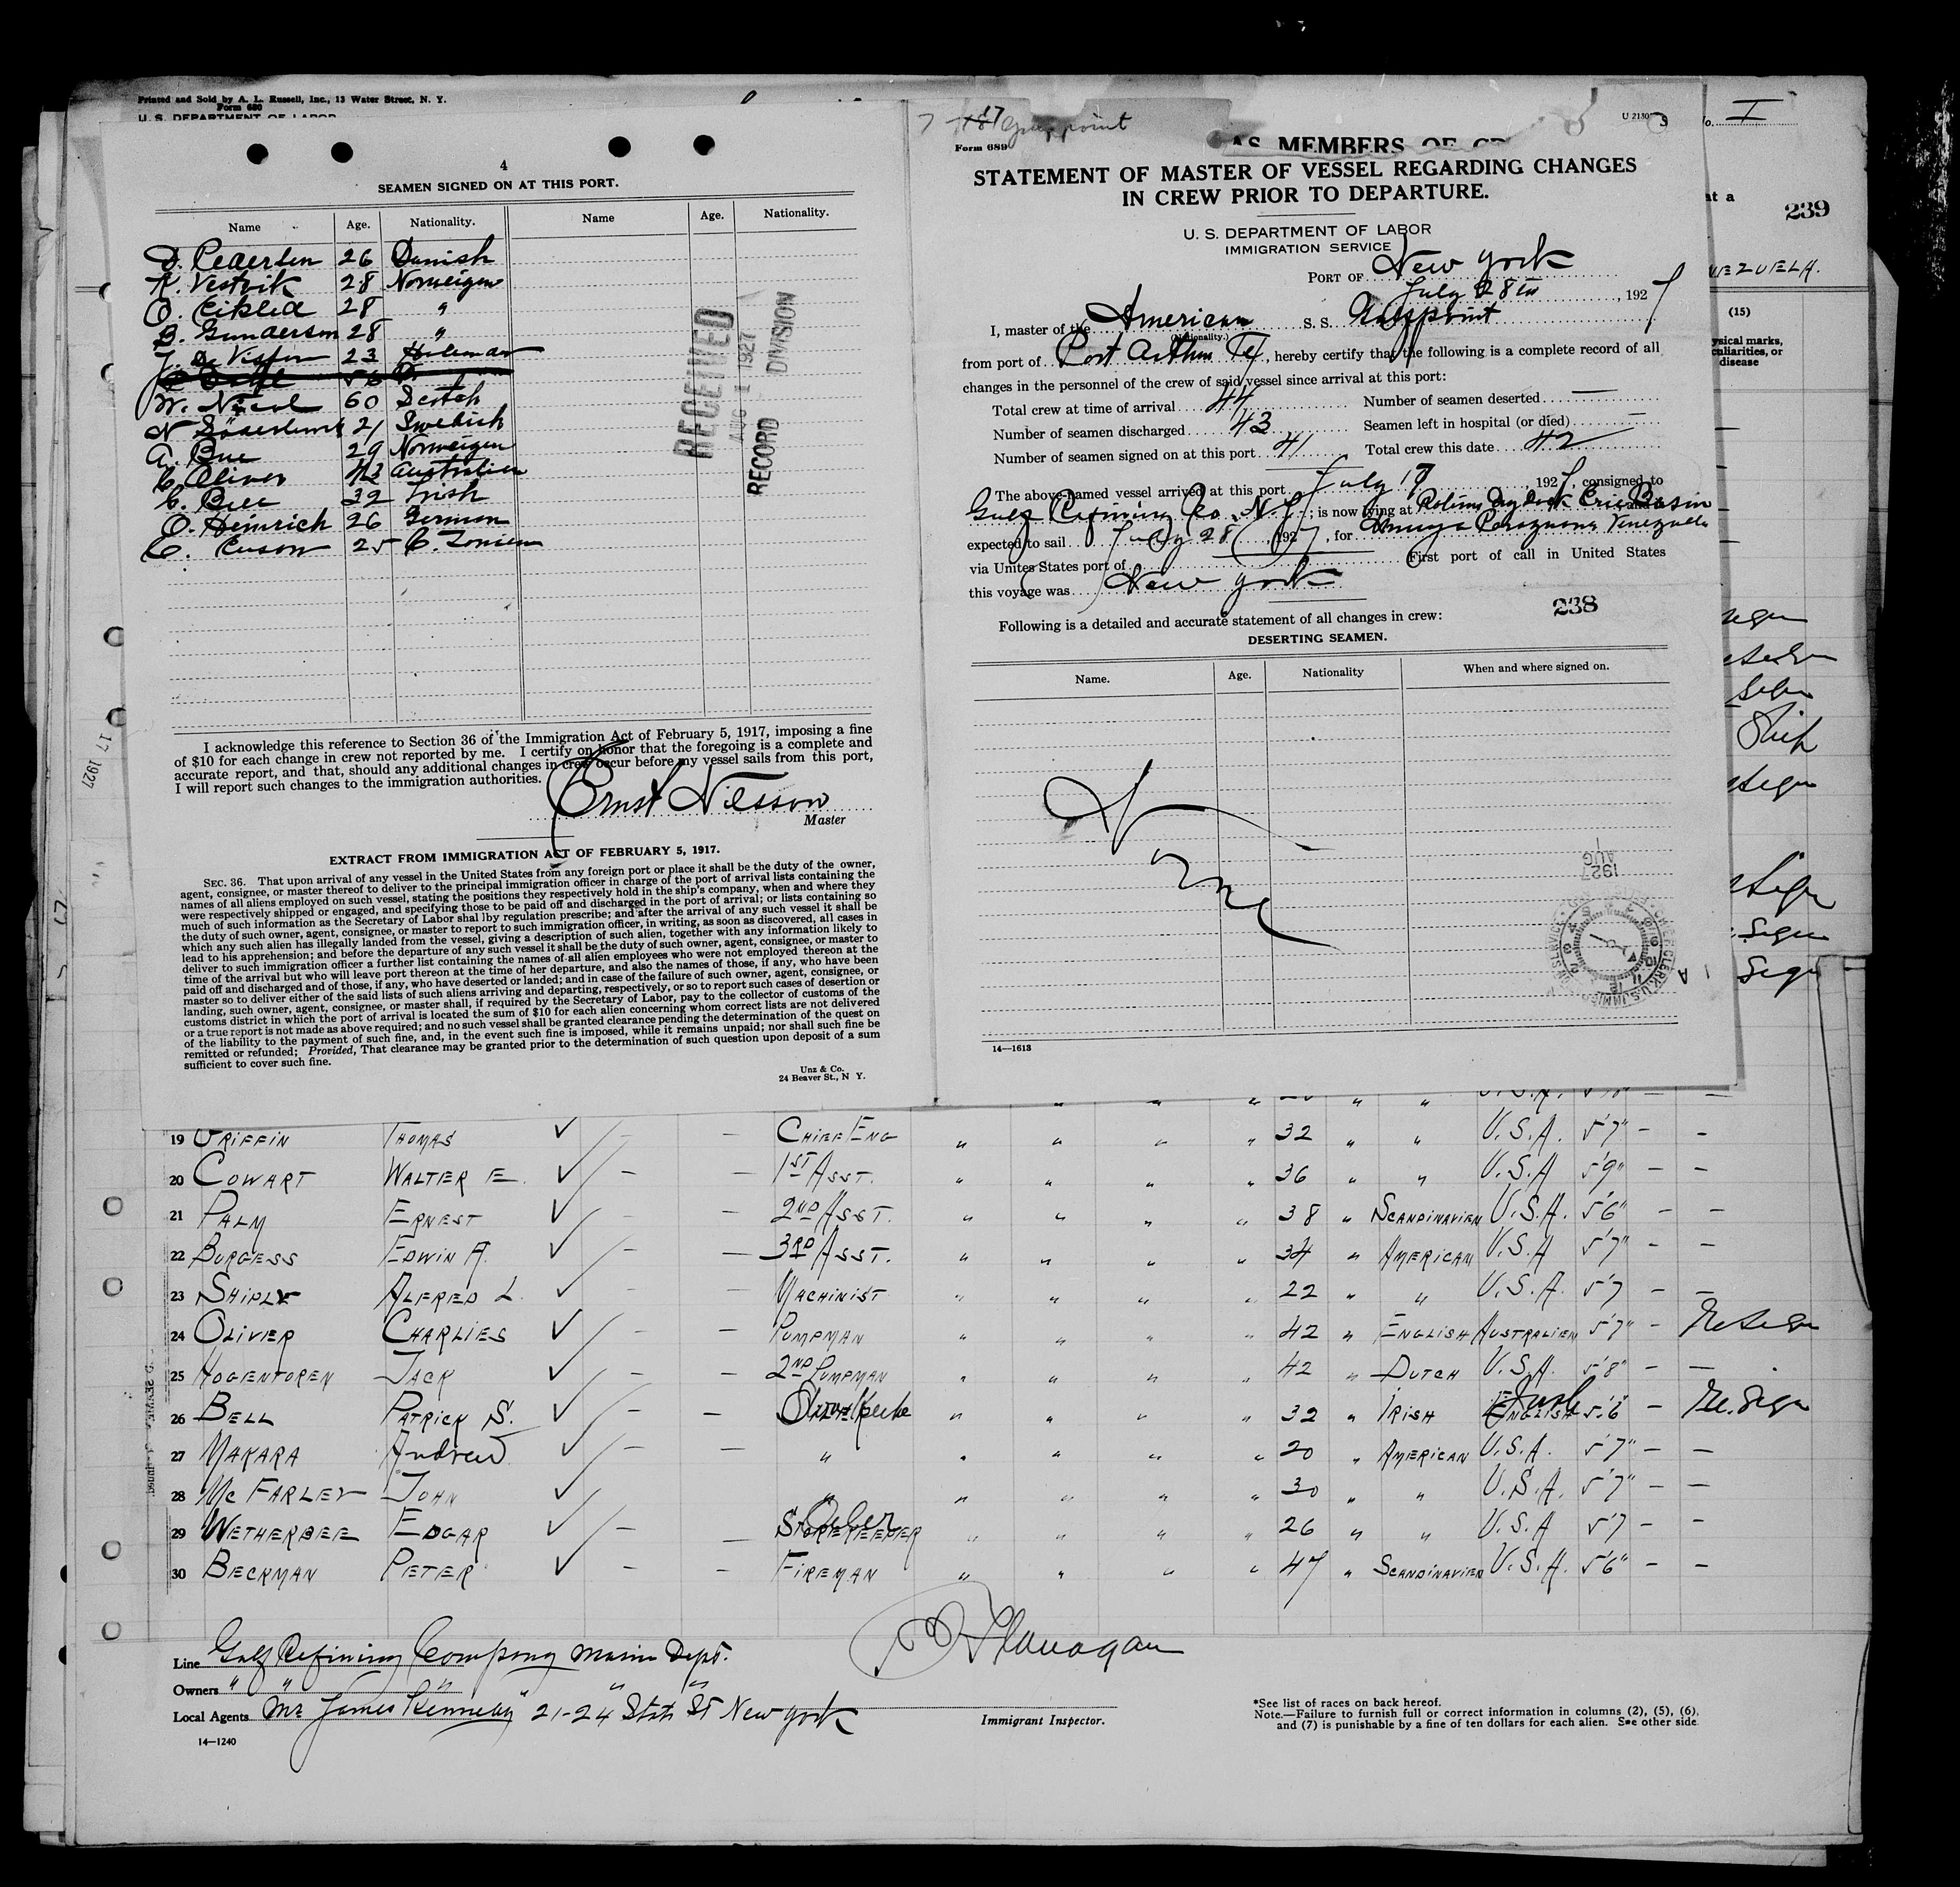 Printed and Sold by A. L. Russell, Inc., 13 Water Street, N. Y.
Form 680
U. S. DEPARTMENT OF LABOR
4
SEAMEN SIGNED ON AT THIS PORT.
Name Age. Nationality. Name Age. Nationality.
D. Pedersen 26 Danish
K. Vestvik 28 Norweigen
O. Eiklid 28 "
B. Gunderson 28 "
J. De Visser 23
W. Nicol 60 Scotch
N 21 Swedish
A. Bue 29 Norweigen
C. Oliver 43 Australien
C. Bell 32 Irish
O. Heinrich 26 German
25
RECEIVED
AUG 1 1927
RECORD DIVISION
I acknowledge this reference to Section 36 of the Immigration Act of February 5, 1917, imposing a fine
of $10 for each change in crew not reported by me. I certify on honor that the foregoing is a complete and
accurate report, and that, should any additional changes in crew occur before my vessel sails from this port,
I will report such changes to the immigration authorities.
Ernst Nilsson
Master
EXTRACT FROM IMMIGRATION ACT OF FEBRUARY 5, 1917.
SEC. 36. That upon arrival of any vessel in the United States from any foreign port or place it shall be the duty of the owner,
agent, consignee, or master thereof to deliver to the principal immigration officer in charge of the port of arrival lists containing the
names of all aliens employed on such vessel, stating the positions they respectively hold in the ship's company, when and where they
were respectively shipped or engaged, and specifying those to be paid off and discharged in the port of arrival; or lists containing so
much of such information as the Secretary of Labor shal lby regulation prescribe; and after the arrival of any such vessel it shall be
the duty of such owner, agent, consignee, or master to report to such immigration officer, in writing, as soon as discovered, all cases in
which any such alien has illegally landed from the vessel, giving a description of such alien, together with any information likely to
lead to his apprehension; and before the departure of any such vessel it shall be the duty of such owner, agent, consignee, or master to
deliver to such immigration officer a further list containing the names of all alien employees who were not employed thereon at the
time of the arrival but who will leave port thereon at the time of her departure, and also the names of those, if any, who have been
paid off and discharged and of those, if any, who have deserted or landed; and in case of the failure of such owner, agent, consignee, or
master so to deliver either of the said lists of such aliens arriving and departing, respectively, or so to report such cases of desertion or
landing, such owner, agent, consignee, or master shall, if required by the Secretary of Labor, pay to the collector of customs of the
customs district in which the port of arrival is located the sum of $10 for each alien concerning whom correct lists are not delivered
or a true report is not made as above required; and no such vessel shall be granted clearance pending the determination of the quest on
of the liability to the payment of such fine, and, in the event such fine is imposed, while it remains unpaid; nor shall such fine be
remitted or refunded; Provided, That clearance may be granted prior to the determination of such question upon deposit of a sum
sufficient to cover such fine.
Unz & Co.
24 Beaver St., N Y.
Gulfpoint
Form 689
U 2130
AS MEMBERS OF
STATEMENT OF MASTER OF VESSEL REGARDING CHANGES
IN CREW PRIOR TO DEPARTURE.
U. S. DEPARTMENT OF LABOR
IMMIGRATION SERVICE
PORT OF New York
July 28th, 1927
I, master of the American S. S. Gulfpoint
(Nationality.)
from port of Port Arthur Tex, hereby certify that the following is a complete record of all
changes in the personnel of the crew of said vessel since arrival at this port:
Total crew at time of arrival 44 Number of seamen deserted —
Number of seamen discharged 43 Seamen left in hospital (or died) —
Number of seamen signed on at this port 41 Total crew this date 42
The above-named vessel arrived at this port July 17 1927, consigned to
Gulf Refining Co. N.Y.; is now lying at Robins Drydock Erie Basin
expected to sail July 28 1927, for Venezuela
via Unites States port of First port of call in United States
this voyage was New York
238
Following is a detailed and accurate statement of all changes in crew:
DESERTING SEAMEN.
Name. Age. Nationality When and where signed on.
None
AUG 1 1927
14—1613
I
at a
239
NEZUELA.
(15)
ysical marks,
culiarities, or
disease
17 1927
19 GRIFFIN THOMAS ✓ — — CHIEF ENG " " " " 32 " " U.S.A. 5'7" — —
20 COWART WALTER E. ✓ — — 1ST ASST. " " " " 36 " " U.S.A 5'9" — —
21 PALM ERNEST ✓ — — 2ND ASST. " " " " 38 " SCANDINAVIEN U.S.A. 5'6" — —
22 BURGESS EDWIN A. ✓ — — 3RD ASST. " " " " 34 " AMERICAN U.S.A 5'7" — —
23 SHIPLY ALFRED L. ✓ — — MACHINIST " " " " 22 " " U.S.A. 5'7 — —
24 OLIVER CHARLIES ✓ — — PUMPMAN " " " " 42 " ENGLISH AUSTRALIEN 5'7" —
25 HOGENTOREN JACK ✓ — — 2ND PUMPMAN " " " " 42 " DUTCH U.S.A. 5'8" — —
26 BELL PATRICK S. ✓ — — " " " " 32 " IRISH ENGLISH Irish 5'6" —
27 MAKARA Andrew ✓ — — " " " " " 20 " AMERICAN U.S.A. 5'7" — —
28 McFARLEY JOHN ✓ " " " " " 30 " " U.S.A. 5'7" — —
29 WETHERBEE EDGAR ✓ — — STOREKEEPER Oiler " " " " 26 " " U.S.A 5'7 — —
30 BECKMAN PETER ✓ — — FIREMAN " " " " 47 " SCANDINAVIEN U.S.A. 5'6" — —
Line Gulf Refining Company Marine Dept.
Owners " " " " "
Local Agents Mr James Kennedy 21-24 State St New York
14—1240
Flanagan
Immigrant Inspector.
*See list of races on back hereof.
Note.—Failure to furnish full or correct information in columns (2), (5), (6),
and (7) is punishable by a fine of ten dollars for each alien. See other side